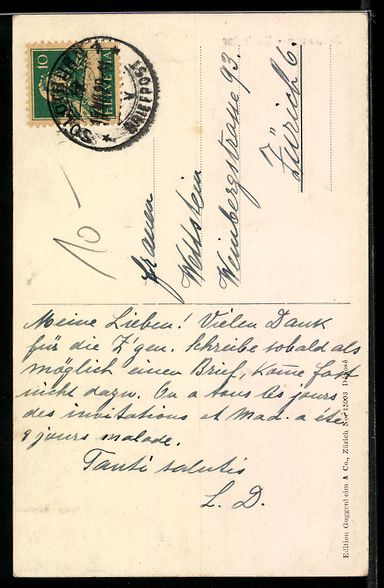 10
HELVETIA
SOLOTHURN
BRIEFPOST
10 –
Frauen
Wettstein
Weinbergstrasse 93.
Zürich 6.
Meine Lieben! Vielen Dank
für die Z'gen. Schreibe sobald als
möglich einen Brief, komme fast
nicht dazu. On a tous les jours
des invitations et Mad. a été
9 jours malade.
Tanti salutis
L. D.
Edition Guggenheim & Co., Zürich No. 12603 Déposé